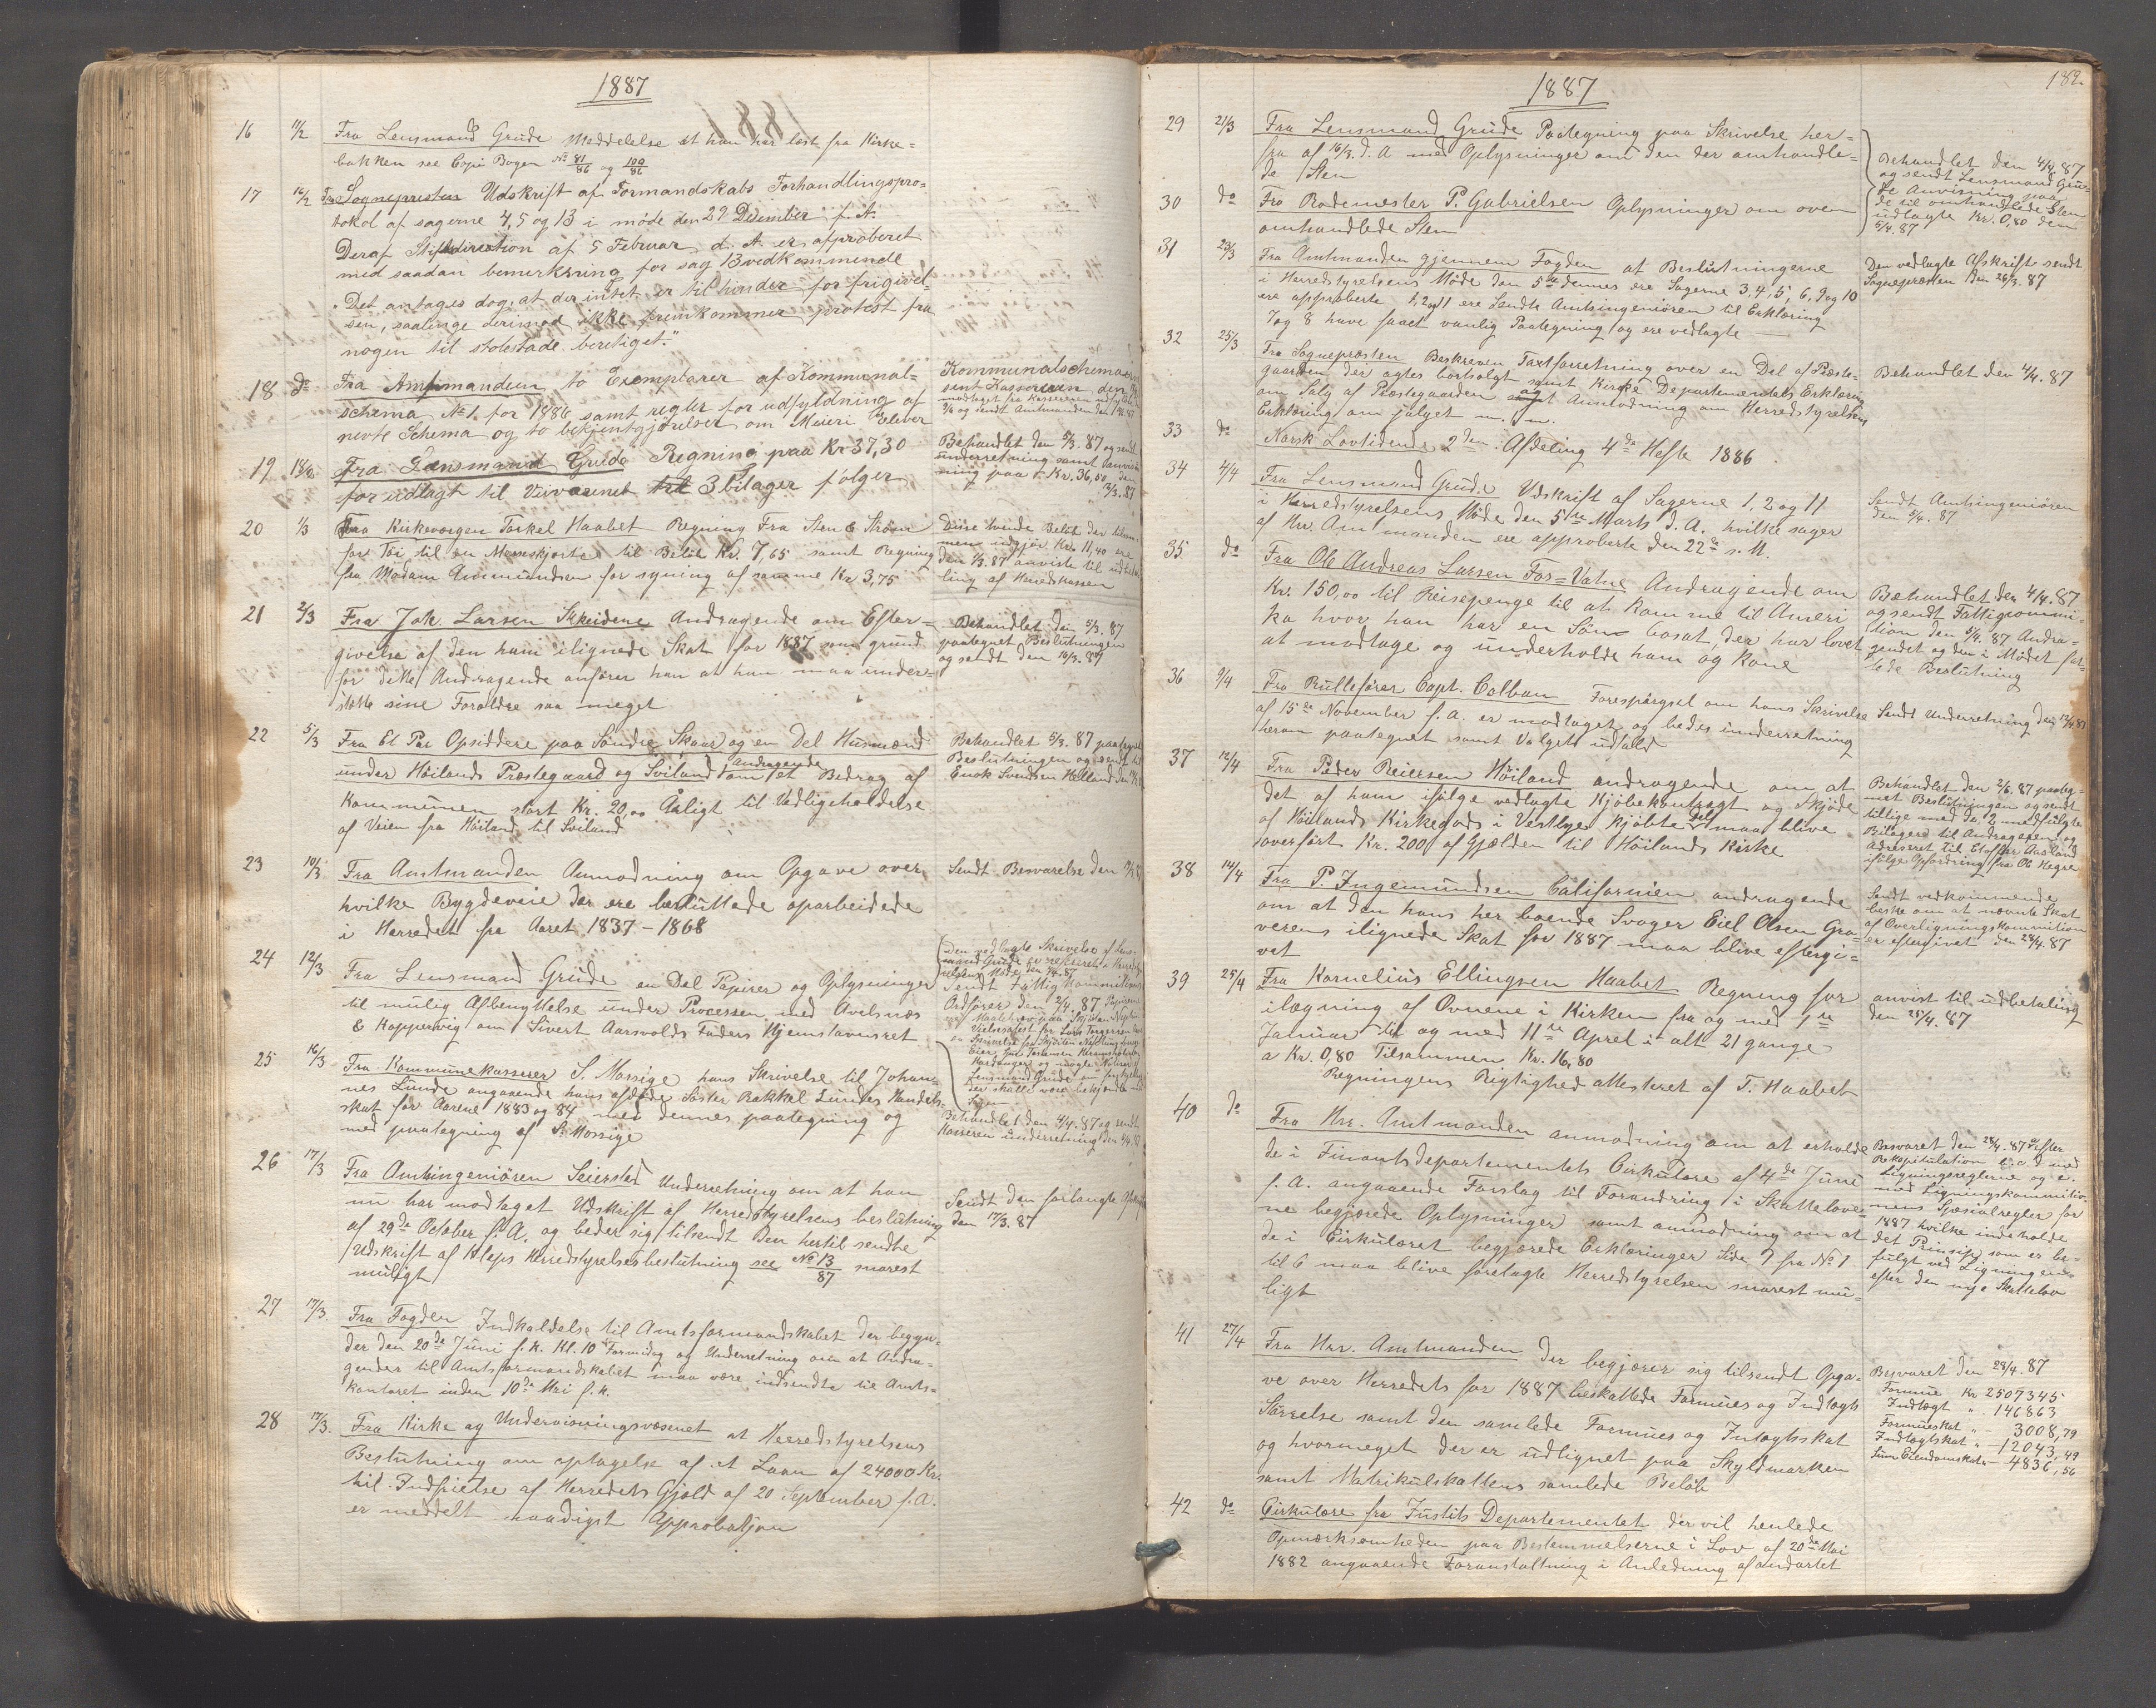 1887
16 11/2 Fra Lensmand Grude Meddelelse at han har læst fra Kirke-
bakken see Copi Bogen No 81/86 og 100/86
17 12/2 Fra Sognepresten Udskrift af Formandskabs Forhandlingspro-
tokol af sagerne 4, 5 og 13 i møde den 29 Desimber f. A.
Deraf Stiftdirection af 5 Februar d. A. er aproberet
med saadan bemerkning for sag 13 vedkommende
"Det antages dog, at der intet er til hinder for frigivel-
sen, saalenge derimod ikke fremkommer protest fra
nogen til stolestade beretiget."
18 do Fra Amtmanden to Exemplarer af Kommunal-
schema No 1 for 1886 samt regler for udfyldning af
nevte Schema og to bekjentgjørelser om Meieri Elever
Kommunalschemaer
sent Kassereren den
modtaget fra Kassereren
og sendt Amtmanden den
19 18/2 Fra Lensmand Grude Regning paa Kr 37,30
for udlagt til Veivæsenet 3 bilager følger
Behandlet den 5/3. 87 og sendt
underretning samt anvis-
ning paa Kr. 36,50 den
12/3. 87
20 1/3 Fra Kirkeværgen Torkel Haabet Regning Fra Sten & Strøm
for Tøi til en Messeskjorte til Beløb Kr. 7,65 samt Regning
fra Madam Aanmundsen for syning af samme Kr 3,75
Disse tvende Beløb der tilsam-
men udgjør Kr. 11,40 ere
den 1/3. 87 anviste til udbeta-
ling af Herredskassen
21 2/3 Fra Joh. Larsen Skeidene Andragende om Efter-
givelse af den ham ilignede Skat for 1887 som grund
for dette Andragende anfører han at han maa under-
støtte sine Forældre saa meget
Behandlet den 5/3. 87
paategnet Beslutningen
og sendt den 10/3. 87
22 5/3 Fra Et Par Opsiddere paa Søndre Skaar og en Del Husmænd
under Høilands Præstegaard og Sviland Andragende om et Bedrag af
Kommunen stort Kr. 20,00 Aarligt til Vedligeholdelse
af Veien fra Høiland til Sviland
Behandlet 5/3. 87 paategnet
Beslutningen og sendt til
Enok Svendsen Helland den
23 10/3 Fra Amtmanden Anmodning om Opgave over
hvilke Bygdeveie der ere besluttede oparbeidede
i Herredet fra Aaret 1837 - 1868
Sendt Besvarelse den
24 12/3 Fra Lensmand Grude en Del Papirer og Oplysninger
til mulig Afbenyttelse under Processen med Avelsnæs
& Koppervig om Sivert Aarsvolds Faders Hjemstavnsret
Den vedlagte Skrivelse af Lens-
mand Grude er refereret i Herredssty-
relsens Møde den 4/4. 87
Sendt Fattig Kommitions
Ordfører den 2/4. 87
25 16/3 Fra Kommunekasserer S. Mossige hans Skrivelse til Johan-
nes Lunde angaaende hans afdøde Søster Rakkel Lundes Handels-
skat for Aarene 1883 og 84 med dennes paategning og
med paategning af S. Mossige
Behandlet den 4/4. 87 og sendt
Kassereren underretning den
26 17/3 Fra Amtsingeniøren Seiersted Underretning om at han
nu har modtaget Udskrift af Herredstyrelsens beslutning
af 29de October f. A. og beder sig tilsendt den hertil sendte
Udskrift af Kleps Herredstyrelsesbeslutning see No 13/87 snarest
muligt
Sendt den forlangte
den 17/3. 87
27 17/3. Fra Fogden Indkaldelse til Amtsformandskabet der begyn-
der den 20de Juni f. k. Kl. 10 Formidag og Underretning om at Andra-
gender til Amtsformandskabet maa være indsendte til Amts-
kontoret inden 10de Mai f. k.
28 17/3. Fra Kirke og Undervisningsvæsenet at Herredstyrelsens
Beslutning om optagelse af et Laan af 24000 Kr.
til Indfrielse af Herredets Gjæld af 20 September f. A.
er meddelt naadigst Approbatjon
1887
182
29 21/3 Fra Lensmand Grude Paategning paa Skrivelse her-
fra af 16/3. d. A med Oplysninger om den der omhandle-
de Sten
Behandlet den 4/4. 87
og sendt Lensmand Gru-
de Anvisning paa
de til omhandlede Sten
udlagte Kr. 0,80 den
5/4. 87
30 do Fra Rodemester P. Gabrielsen Oplysninger om oven
omhandlede Sten
31 23/3 Fra Amtmanden gjennem Fogden at Beslutningerne
i Herredstyrelsens Møde den 5te dennes ere Sagerne 3, 4, 5, 6, 9 og 10
ere approberte 1, 2 og 11 ere Sendte Amtsingeniøren til Erklæring
7 og 8 have faaet vanlig Paategning og ere vedlagte
Den vedlagte Afskrift sendt
Sognepræsten den 26/3. 87
32 25/3 Fra Sognepræsten Beskreven Taxtforretning over en Del af Præste-
gaarden der agtes bortsolgt samt Kirke Departementets Erklæring
om Salg af Præstegaarden og Anmodning om Herredstyrelsens
Erklæring om salget m. m.
Behandlet den 4/4. 87
33 do Norsk Lovtidende 2den Afdeling 4de Hefte 1886
34 4/4 Fra Lensmand Grude Udskrift af Sagerne 1, 2 og 11
i Herredstyrelsens Møde den 5te Marts d. A. hvilke sager
af Hr. Amtmanden ere approberte den 22de s. M.
Sendt Amtsingeniøren
den 5/4. 87
35 do Fra Ole Andreas Larsen Fos-Vatne Andragende om
Kr. 150,00 til Reisepenge til at komme til Ameri
ka hvor han har en Søn bosat, der har lovet
at modtage og underholde ham og Kone
Behandlet den 4/4. 87
og sendt Fattigcommi-
tion den 5/4. 87 Andra-
gendet og den i Mødet fat-
tede Beslutning
36 9/4 Fra Rullefører Capt. Colban Forespørgsel om hans Skrivelse
af 15de November f. A. er modtaget og bedes underretning
herom paategnet samt Valgets udfald
Sendt Underretning den 12/4. 87
37 12/4 Fra Peder Reiersen Høiland andragende om at
det af ham ifølge vedlagte Kjøbekontragt og Skjøde
af Høilands Kirkegods i Vestlye kjøbte Del maa blive
overført Kr. 200 af Gjælden til Høilands Kirke
Behandlet den 2/6. 87 paateg-
net Beslutningen og sendt
tillige med de 2 medfulgte
Bilagere til Andrageren og
Adresseret til Elofter Aasland
ifølge Opfordring fra Ole Hegre
38 14/4 Fra P. Ingemundsen Californien andragende
om at den hans her boende Svoger Eiel Olsen Gra-
verens ilignede Skat for 1887 maa blive eftergi-
vet
Sendt vedkommende
beske om at nævnte Skat
af Overligningskommition
er eftergivet den 28/4. 87
39 25/4 Fra Kornelius Ellingsen Haabet Regning for
ilægning af Ovnene i Kirken fra og med 1ste
Januar til og med 11te April i alt 21 gange
a Kr. 0,80 Tilsammen Kr. 16,80
Regningens Rigtighed attesteret af T. Haabet
anvist til udbetaling
den 25/4. 87
40 do Fra Hrr. Amtmanden anmodning om at erholde
de i Finantsdepartementets Cirkulære af 4de Juni
f. A. angaaende Forslag til Forandring i Skattelove-
ne begjærede Oplysninger samt anmodning om at
de i Cirkulæret begjærede Erklæringer Side 7 fra No 1
til 6 maa blive forelagte Herredstyrelsen snarest mu-
ligt
Besvaret den 28/4. 87 efter
Rekapitulation c. d med
Ligningsreglerne og e.
med Ligningskommitio-
nens Spesialregler for
1887 hvilke indeholde
det Prinsip, som er be-
fulgt ved Ligningen
efter den nye Skattelov
41 27/4 Fra Hrr. Amtmanden der begjærer sig tilsendt Opga-
ve over Herredets for 1887 beskattede Formues og Indtægts
Størrelse samt den samlede Formues og Intægtsskat
og hvormeget der er udlignet paa Skyldmarken
samt Matrikulskattens samlede Beløb
Besvaret den 28/4. 87
Formue Kr 2507345
Indtægt " 146863
Formueskat " - 3008,79
Indtægtskat " - 12043,49
Eiendomskat - 4836,56
42 do Cirkulære fra Justits Departementet der vil henlede
Opmærksomheden paa Bestemmelserne i Lov af 20de Mai
1882 angaaende Foranstaltning i Anledning af andartet